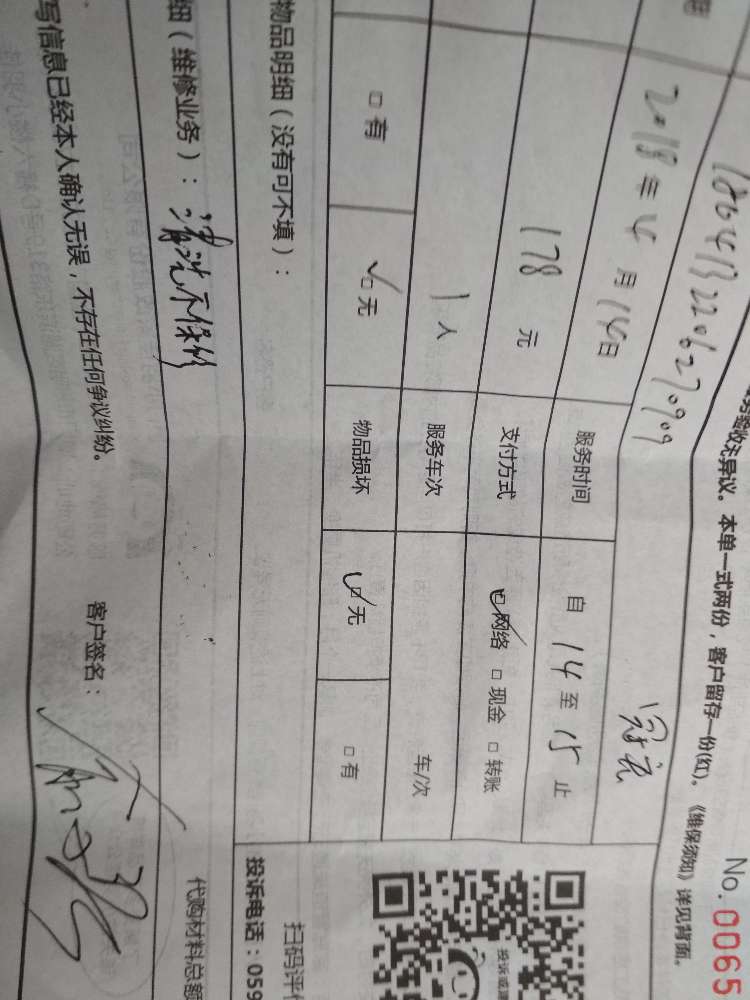 No. 0065
务验收无异议。本单一式两份，客户留存一份(红)。《维保须知》详见背面。
2018年4月14日 服务时间 自 14 至 15 止
178 元 支付方式 ☑网络 □现金 □转账
1 人 服务车次 车/次
□有 ☑无 物品损坏 ☑无 □有
物品明细（没有可不填）：
细（维修业务）：清洗不保修
写信息已经本人确认无误，不存在任何争议纠纷。 客户签名：
投诉建议
扫码评价
投诉电话：059
代购材料总额